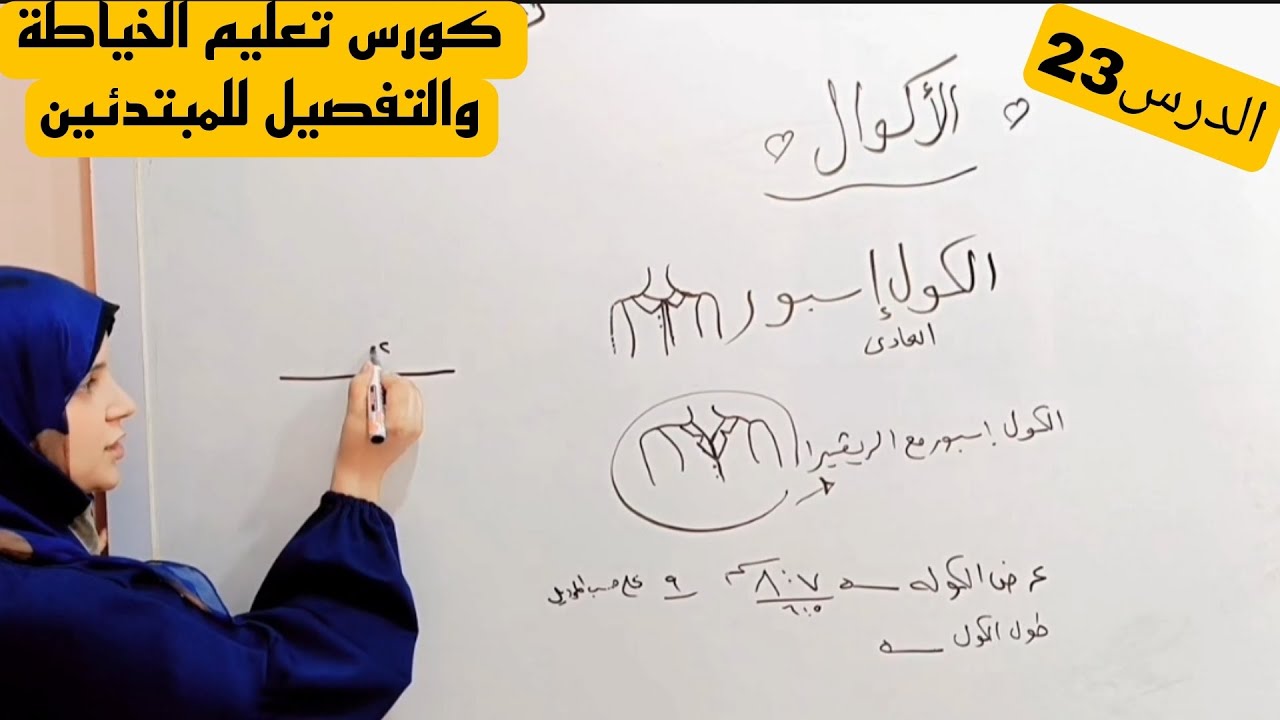 كورس تعليم الخياطة
والتفصيل للمبتدئين
الدرس23
الأكوال
الكول إسبور
العادى
الكول إسبور مع الريڤيرا
عرض الكوله ٧:٨ سم ٩ على حسب الموديل
٥:٦
طول الكول
٢